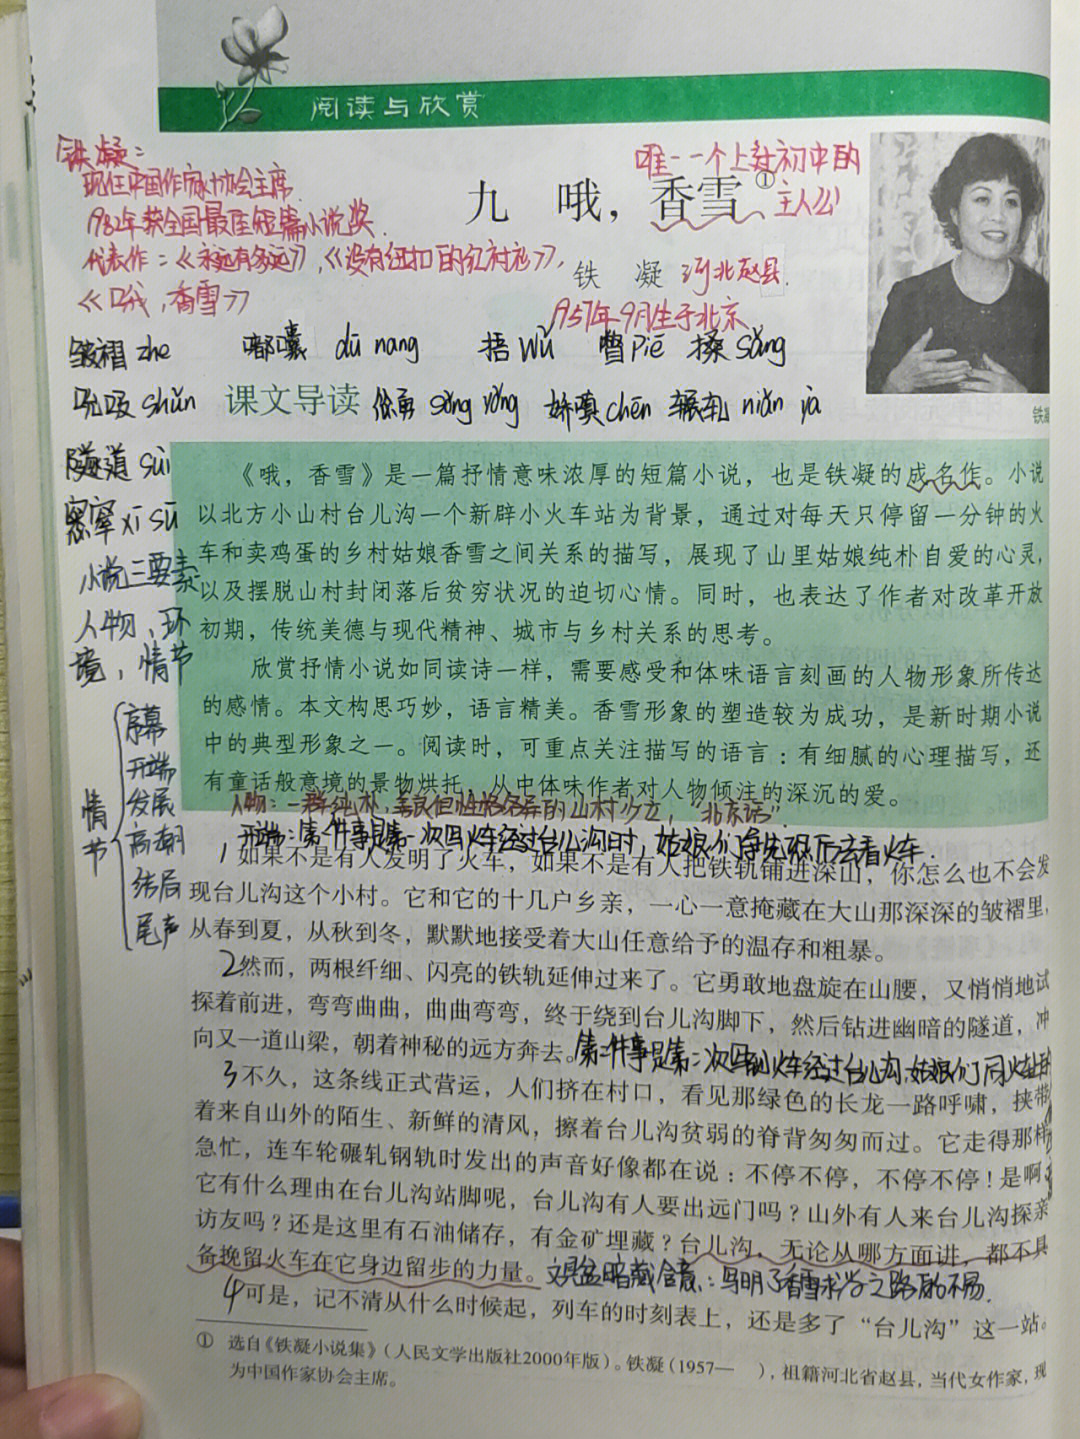 阅读与欣赏
铁凝：
现任中国作家协会主席.
1982年获全国最佳短篇小说奖.
代表作：《永远有多远》，《没有纽扣的红衬衫》，
《哦，香雪》
唯一一个上过初中的
主人公
九 哦，香雪①
铁 凝 河北赵县.
1957年9月生于北京
皱褶 zhe 嘟囔 dū nang 捂 wǔ 瞥 piē 搡 sǎng
吮吸 shǔn 课文导读 怂恿 sǒng yǒng 娇嗔 chēn 辗轧 niǎn yà
铁凝
隧道 suì
窸窣 xī sū
小说三要素：
人物、环
境，情节
《哦，香雪》是一篇抒情意味浓厚的短篇小说，也是铁凝的成名作。小说
以北方小山村台儿沟一个新辟小火车站为背景，通过对每天只停留一分钟的火
车和卖鸡蛋的乡村姑娘香雪之间关系的描写，展现了山里姑娘纯朴自爱的心灵，
以及摆脱山村封闭落后贫穷状况的迫切心情。同时，也表达了作者对改革开放
初期，传统美德与现代精神、城市与乡村关系的思考。
欣赏抒情小说如同读诗一样，需要感受和体味语言刻画的人物形象所传达
的感情。本文构思巧妙，语言精美。香雪形象的塑造较为成功，是新时期小说
中的典型形象之一。阅读时，可重点关注描写的语言：有细腻的心理描写，还
有童话般意境的景物烘托，从中体味作者对人物倾注的深沉的爱。
情节
序幕
开端
发展
高潮
结局
尾声
人物：一群纯朴，善良但性格各异的山村少女，“北京话”.
开端：第一件事是第一次写火车经过台儿沟时，姑娘们争先恐后去看火车.
1如果不是有人发明了火车，如果不是有人把铁轨铺进深山，你怎么也不会发
现台儿沟这个小村。它和它的十几户乡亲，一心一意掩藏在大山那深深的皱褶里，
从春到夏，从秋到冬，默默地接受着大山任意给予的温存和粗暴。
2然而，两根纤细、闪亮的铁轨延伸过来了。它勇敢地盘旋在山腰，又悄悄地试
探着前进，弯弯曲曲，曲曲弯弯，终于绕到台儿沟脚下，然后钻进幽暗的隧道，冲
向又一道山梁，朝着神秘的远方奔去。
第二件事是第二次写到火车经过台儿沟，姑娘们同火车上的
3不久，这条线正式营运，人们挤在村口，看见那绿色的长龙一路呼啸，挟带
着来自山外的陌生、新鲜的清风，擦着台儿沟贫弱的脊背匆匆而过。它走得那样
急忙，连车轮碾轧钢轨时发出的声音好像都在说：不停不停，不停不停！是啊，
它有什么理由在台儿沟站脚呢，台儿沟有人要出远门吗？山外有人来台儿沟探亲
访友吗？还是这里有石油储存，有金矿埋藏？台儿沟，无论从哪方面讲，都不具
备挽留火车在它身边留步的力量。
暗藏含意：写明了香雪求学之路的不易.
4可是，记不清从什么时候起，列车的时刻表上，还是多了“台儿沟”这一站。
① 选自《铁凝小说集》（人民文学出版社2000年版）。铁凝（1957— ），祖籍河北省赵县，当代女作家，现
为中国作家协会主席。